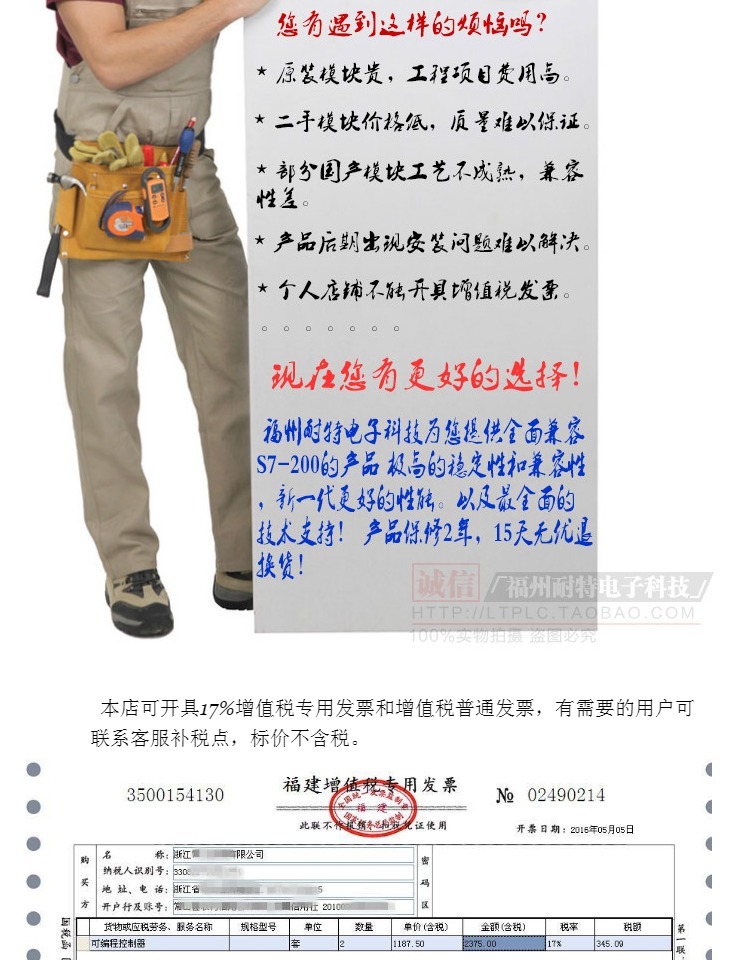 您有遇到这样的烦恼吗?
* 原装模块贵，工程项目费用高。
* 二手模块价格低，质量难以保证。
* 部分国产模块工艺不成熟，兼容
性差。
* 产品后期出现安装问题难以解决。
* 个人店铺不能开具增值税发票。
。。。。。。。
现在您有更好的选择!
福州耐特电子科技为您提供全面兼容
S7-200的产品 极高的稳定性和兼容性
，新一代更好的性能。以及最全面的
技术支持! 产品保修2年，15天无忧退
换货!
诚信 福州耐特电子科技
HTTP://LTPLC.TAOBAO.COM
100%实物拍摄 盗图必究
本店可开具17%增值税专用发票和增值税普通发票，有需要的用户可
联系客服补税点，标价不含税。
3500154130 福建增值税专用发票 № 02490214
开票日期：2016年05月05日
购买方
名 称：浙江 有限公司
纳税人识别号：
地 址、电 话：浙江省
开户行及账号： 信用社
密码区
货物或应税劳务、服务名称 规格型号 单位 数量 单价(含税) 金额(含税) 税率 税额
可编程控制器 套 2 1187.50 2375.00 17% 345.09
第一联